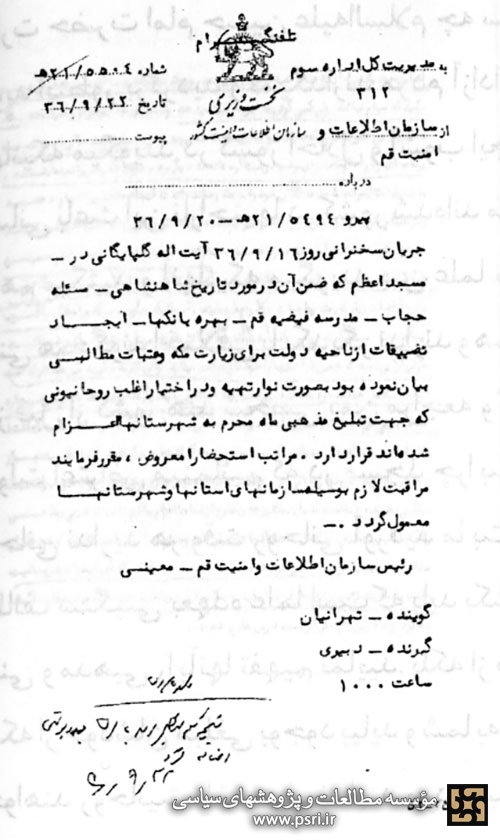 تلفنگرام
نخست وزیری
سازمان اطلاعات و امنیت کشور
به مدیریت کل اداره سوم
۳۱۲
از سازمان اطلاعات و
امنیت قم
شماره ۲۱/۵۵۰۴ه‍
تاریخ ۳۶/۹/۲۲
پیوست
درباره
پیرو ۲۱/۵۴۹۴ه‍ – ۳۶/۹/۲۰
جریان سخنرانی روز ۳۶/۹/۱۶ آیت اله گلپایگانی در –
مسجد اعظم که ضمن آن در مورد تاریخ شاهنشاهی – مسئله
حجاب – مدرسه فیضیه قم – بهره بانکها – ایجاد
تضییقات از ناحیه دولت برای زیارت مکه و عتبات مطالبی
بیان نموده بود بصورت نوار تهیه و در اختیار اغلب روحانیونی
که جهت تبلیغ مذهبی ماه محرم به شهرستانها اعزام
شده‌اند قرار دارد . مراتب استحضارا معروض ، مقرر فرمایند
مراقبت لازم بوسیله سازمانهای استانها و شهرستانها
معمول گردد . –
رئیس سازمان اطلاعات و امنیت قم – معینی
گوینده – تهرانیان
گیرنده – دبیری
ساعت ۱۰۰۰
مؤسسه مطالعات و پژوهشهای سیاسی
www.psri.ir